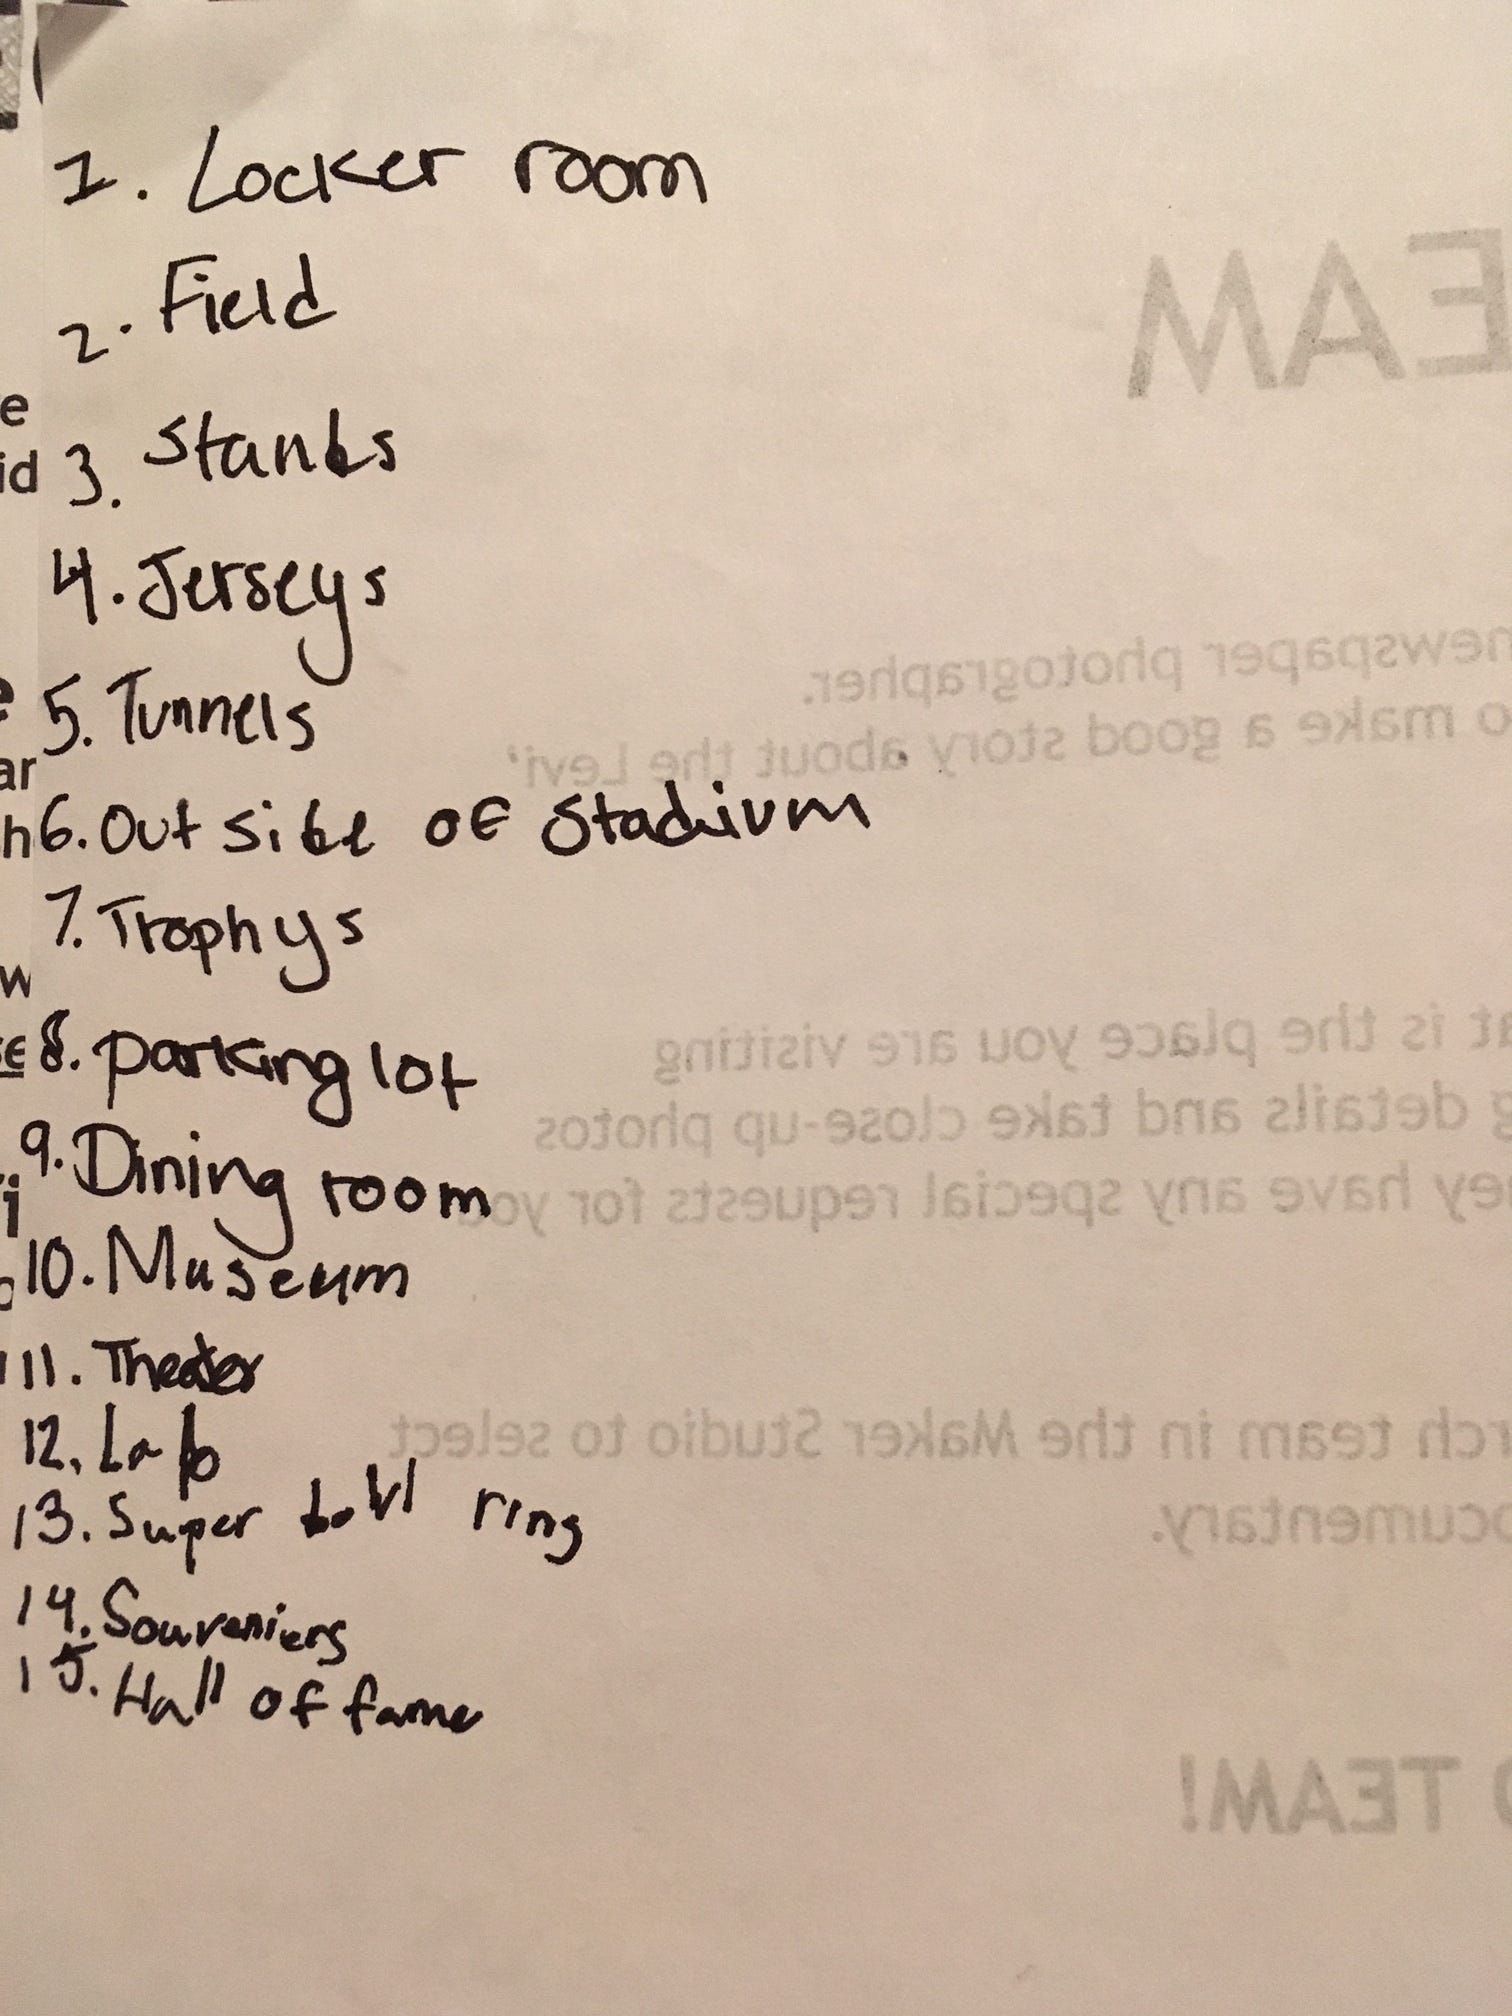 1. Locker room
2. Field
3. Stanbs
4. Jerseys
5. Tunnels
6. Out sibe of Stadium
7. Trophys
8. parking lot
9. Dining room
10. Museum
11. Theater
12. Lab
13. Super bowl ring
14. Souveniers
15. Hall of fame
EAM
newspaper photographer.
o make a good story about the Levi'
at is the place you are visiting
g details and take close-up photos
ey have any special requests for you
rch team in the Maker Studio to select
ocumentary.
TEAM!